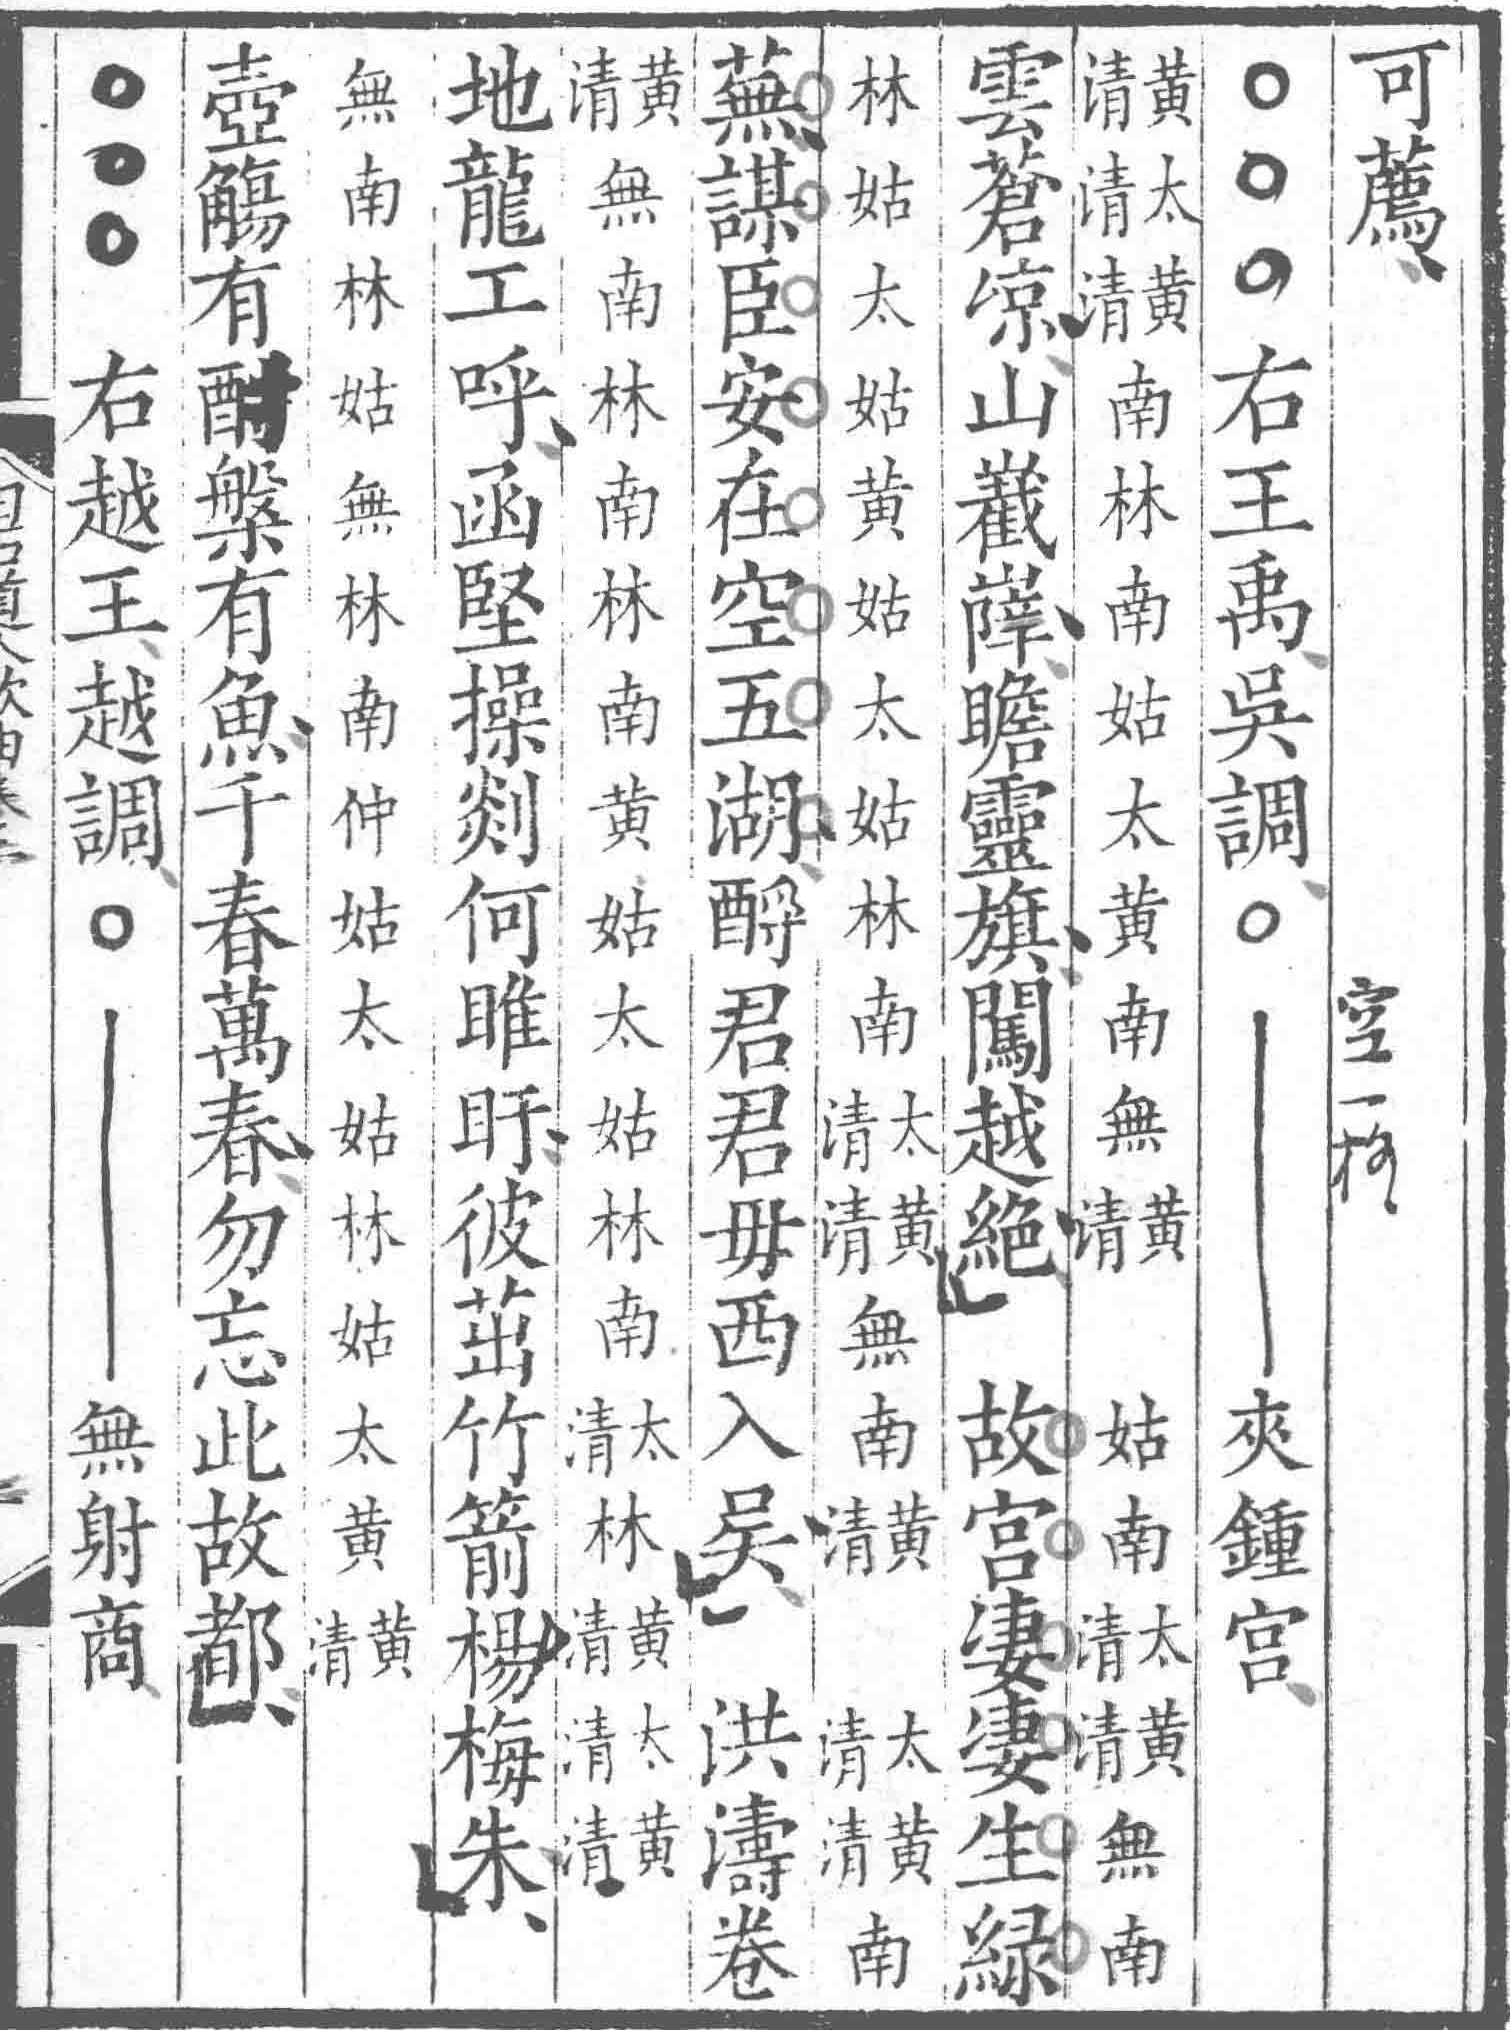 可薦
空一格
右王禹吳調 夾鍾宮
黄清 太清 黄清 南 林 南 姑 太 黄 南 無 黄清 姑 南 太清 黄清 無 南
雲蒼凉山嶻嶭瞻靈旗闖越絕 故宮淒淒生綠
林 姑 太 姑 黄 姑 太 姑 林 南 太清 黄清 無 南 黄清 太清 黄清 南
蕪謀臣安在空五湖酹君君毋西入吳 洪濤卷
黄清 無 南 林 南 林 南 黄 姑 太 姑 林 南 太清 林 黄清 太清 黄清
地龍工呼函堅操剡何睢盱彼茁竹箭楊梅朱
無 南 林 姑 無 林 南 仲 姑 太 姑 林 姑 太 黄 黄清
壺觴有酎槃有魚千春萬春勿忘此故都
右越王越調 無射商